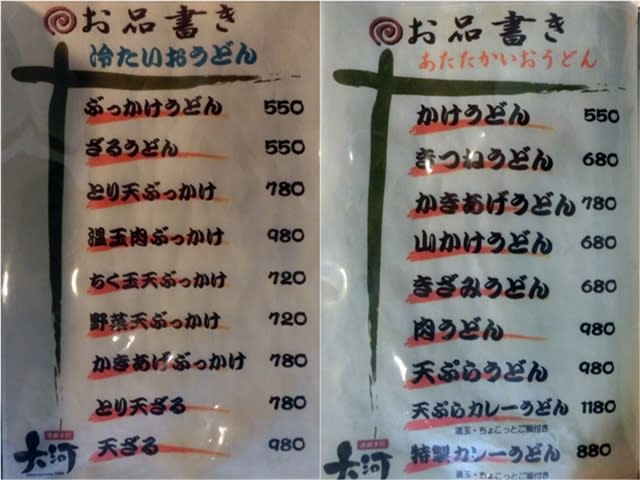 お品書き
冷たいおうどん
ぶっかけうどん 550
ざるうどん 550
とり天ぶっかけ 780
温玉肉ぶっかけ 980
ちく玉天ぶっかけ 720
野菜天ぶっかけ 720
かきあげぶっかけ 780
とり天ざる 780
天ざる 980
大河
お品書き
あたたかいおうどん
かけうどん 550
きつねうどん 680
かきあげうどん 780
山かけうどん 680
きざみうどん 680
肉うどん 980
天ぷらうどん 980
天ぷらカレーうどん 1180
温玉・ちょこっとご飯付き
特製カレーうどん 880
温玉・ちょこっとご飯付き
大河